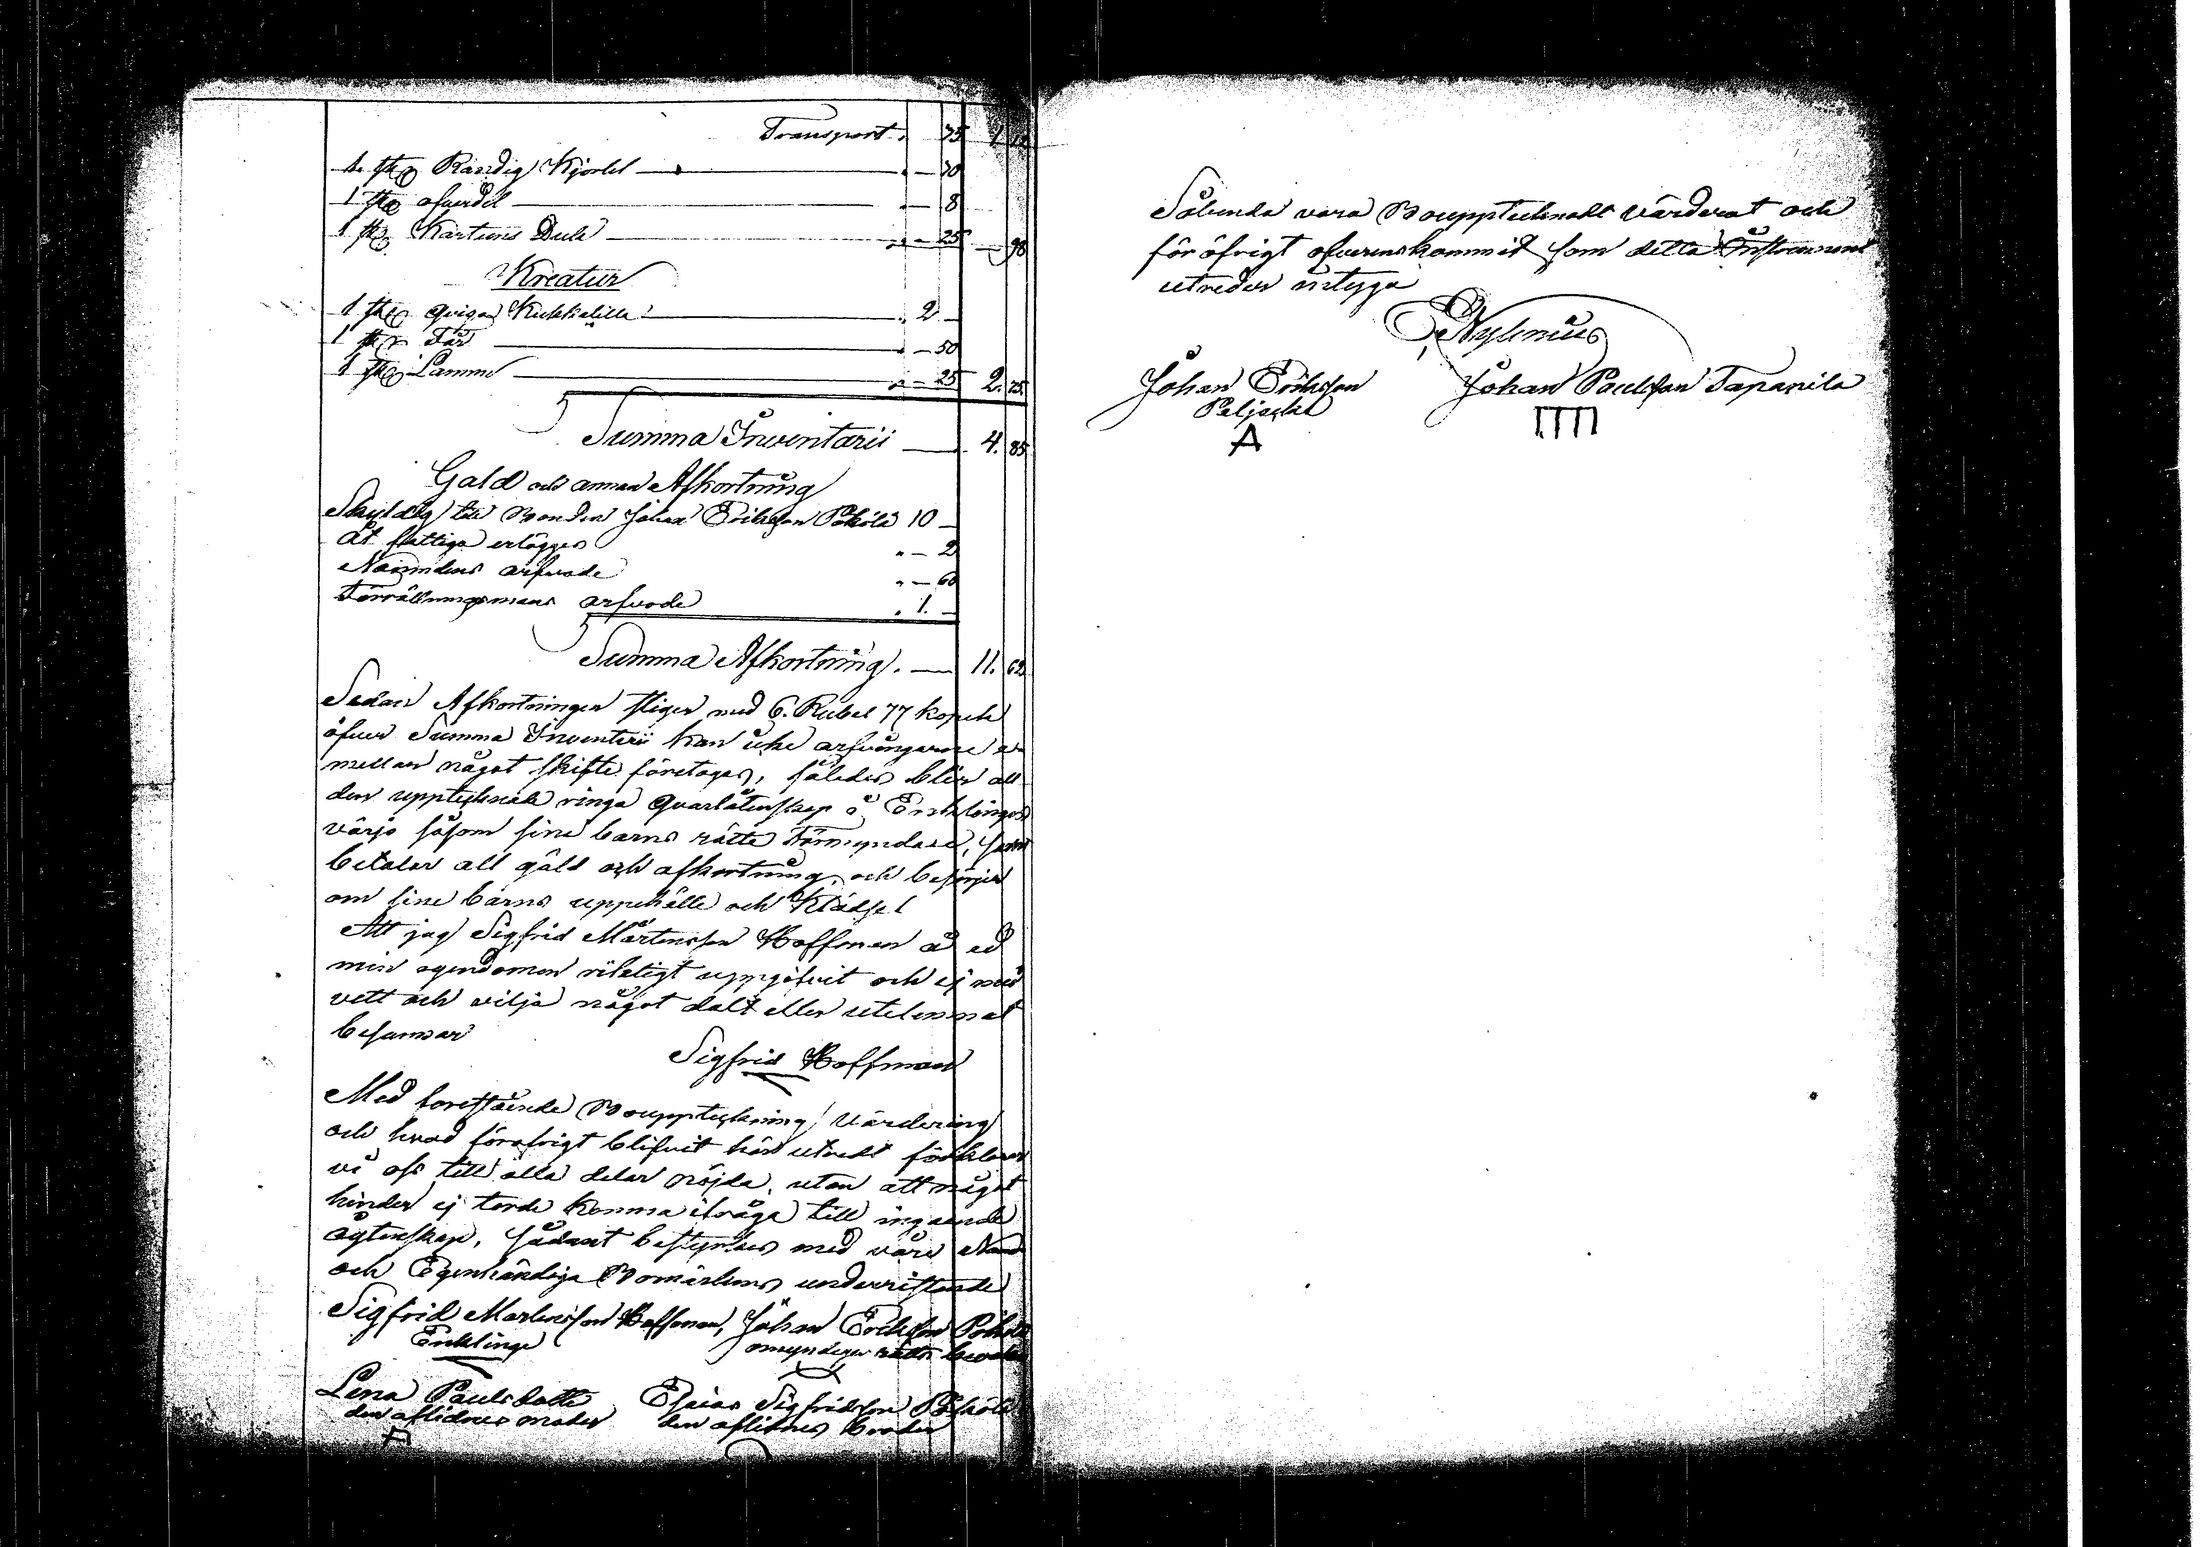 Transport. 75 1 12
1 st Randig Kjortel — — 20
1 st ofverdel — — 8
1 st Kartuns Duk — — 25 — 98
Kreatur
1 st qviga Kukkalilla — „ 2 —
1 st Får — — 50
1 st Lamm — — 25 2. 75
Summa Inventarii — 4. 85
Gäld och annan Afkortning
Skyldig till Bonden Johan Eriksson Pökölä 10 —
åt fattiga erlägges „ — 2
Nämndens arfvode „ — 60
Förrättningsmans arfvode „ 1. —
Summa Afkortning. — 11. 62
Sedan Afkortningen stiger med 6. Rubel 77 kopek
öfver Summa Inventarii kan icke arfvingarne e
mellan något skifte företagas, således blir all
den upptecknade ringa qvarlåtenskap i Enklingens
värjo såsom sine barns rätte Förmyndare, som
betalar all gäld och afkortning, och besörjer
om sine barns uppehälle och Klädsel
Att jag Sigfrid Mårtensson Hoffman å ed
min egendomen riktigt uppgifvit och ej med
vett och vilja något dolt eller utelemnat
besannar
Sigfrid Hoffman
Med förestående Bouppteckning, värdering
och hvad föröfrigt blifvit här utredt förklarar
vi oss till alla delar nöjda, utan att något
hinder ej torde komma ifråga till ingående
ägtenskap, sådant bestyrkes med våra Namn
och Egenhändiga Bomärkens underristande
Sigfrid Mårtensson Hoffman, Johan Eriksson Pökölä
Enklinge omyndigas rätte
Lena Paulsdotter Esaias Sigfridsson Pökölä
den aflidnes moder den aflidnes broder
Sålunda vara Bouppteknadt värderat och
för öfrigt öfverenskommit som detta Instrument
utreder intyga
Nylenius
Johan Eriksson Johan Paulsson Tapanila
Peljaska
A